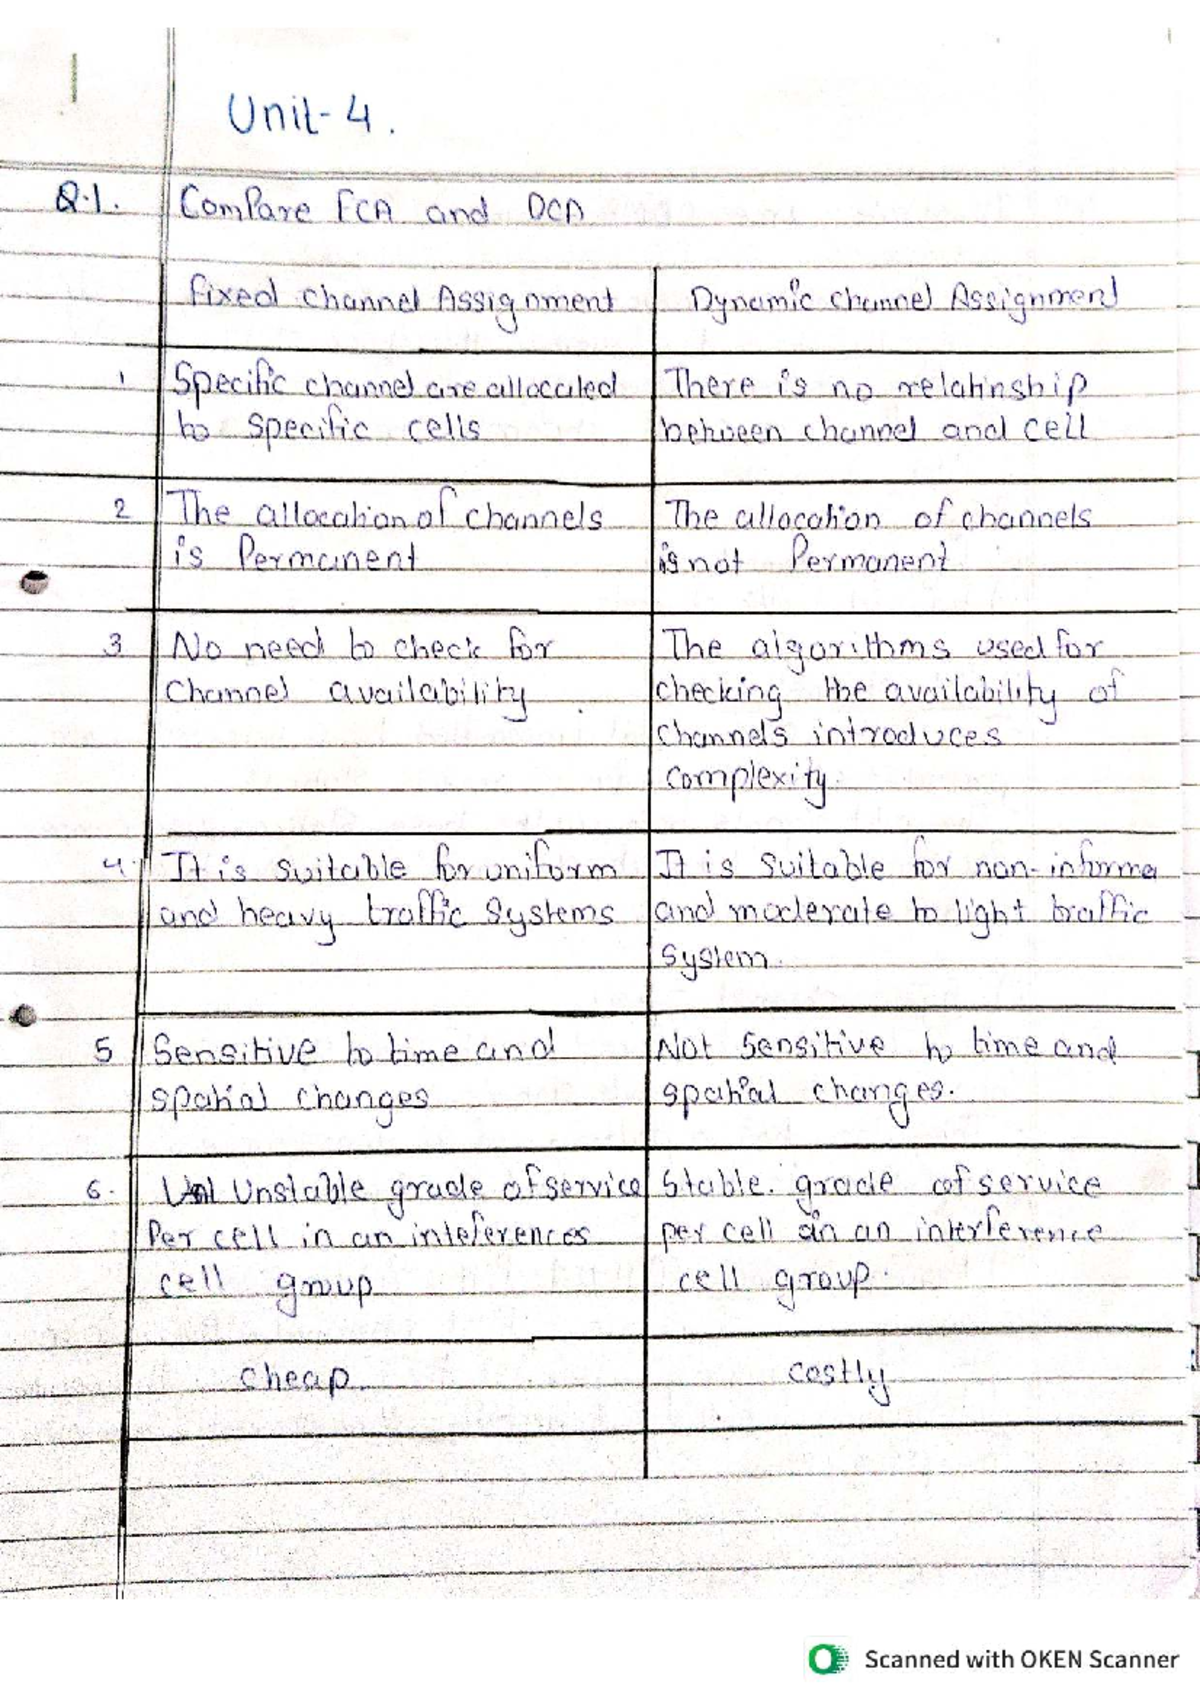 Unit-4.
Q.1. Compare FCA and DCA
fixed channel Assignment Dynamic channel Assignment
1 Specific channel are allocated There is no relatinship
to specific cells between channel and cell
2 The allocation of channels The allocation of channels
is Permanent is not Permanent
3 No need to check for The algorithms used for
channel availability checking the availability of
channels introduces
complexity.
4 It is suitable for uniform It is suitable for non-informa
and heavy traffic systems and moderate to light traffic
system.
5 Sensitive to time and Not sensitive to time and
spatial changes spatial changes.
6. Unstable grade of service Stable. grade of service
Per cell in an inteferences per cell in an interference
cell group cell group.
cheap. costly
Scanned with OKEN Scanner